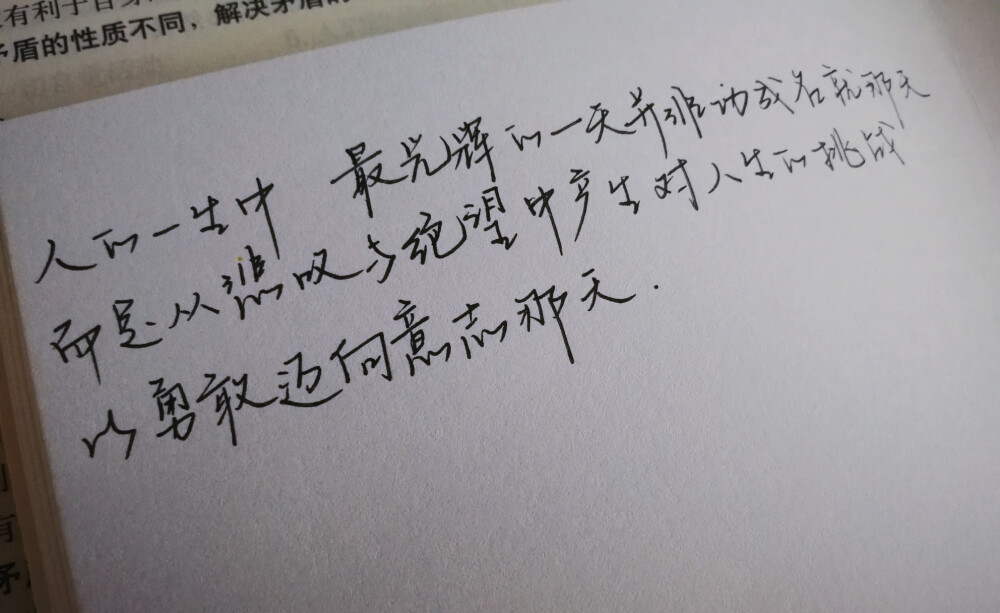 有利于自身
矛盾的性质不同，解决矛盾的
人的一生中 最光辉的一天并非功成名就那天
而是从悲叹与绝望中产生对人生的挑战
以勇敢迈向意志那天.
有
矛